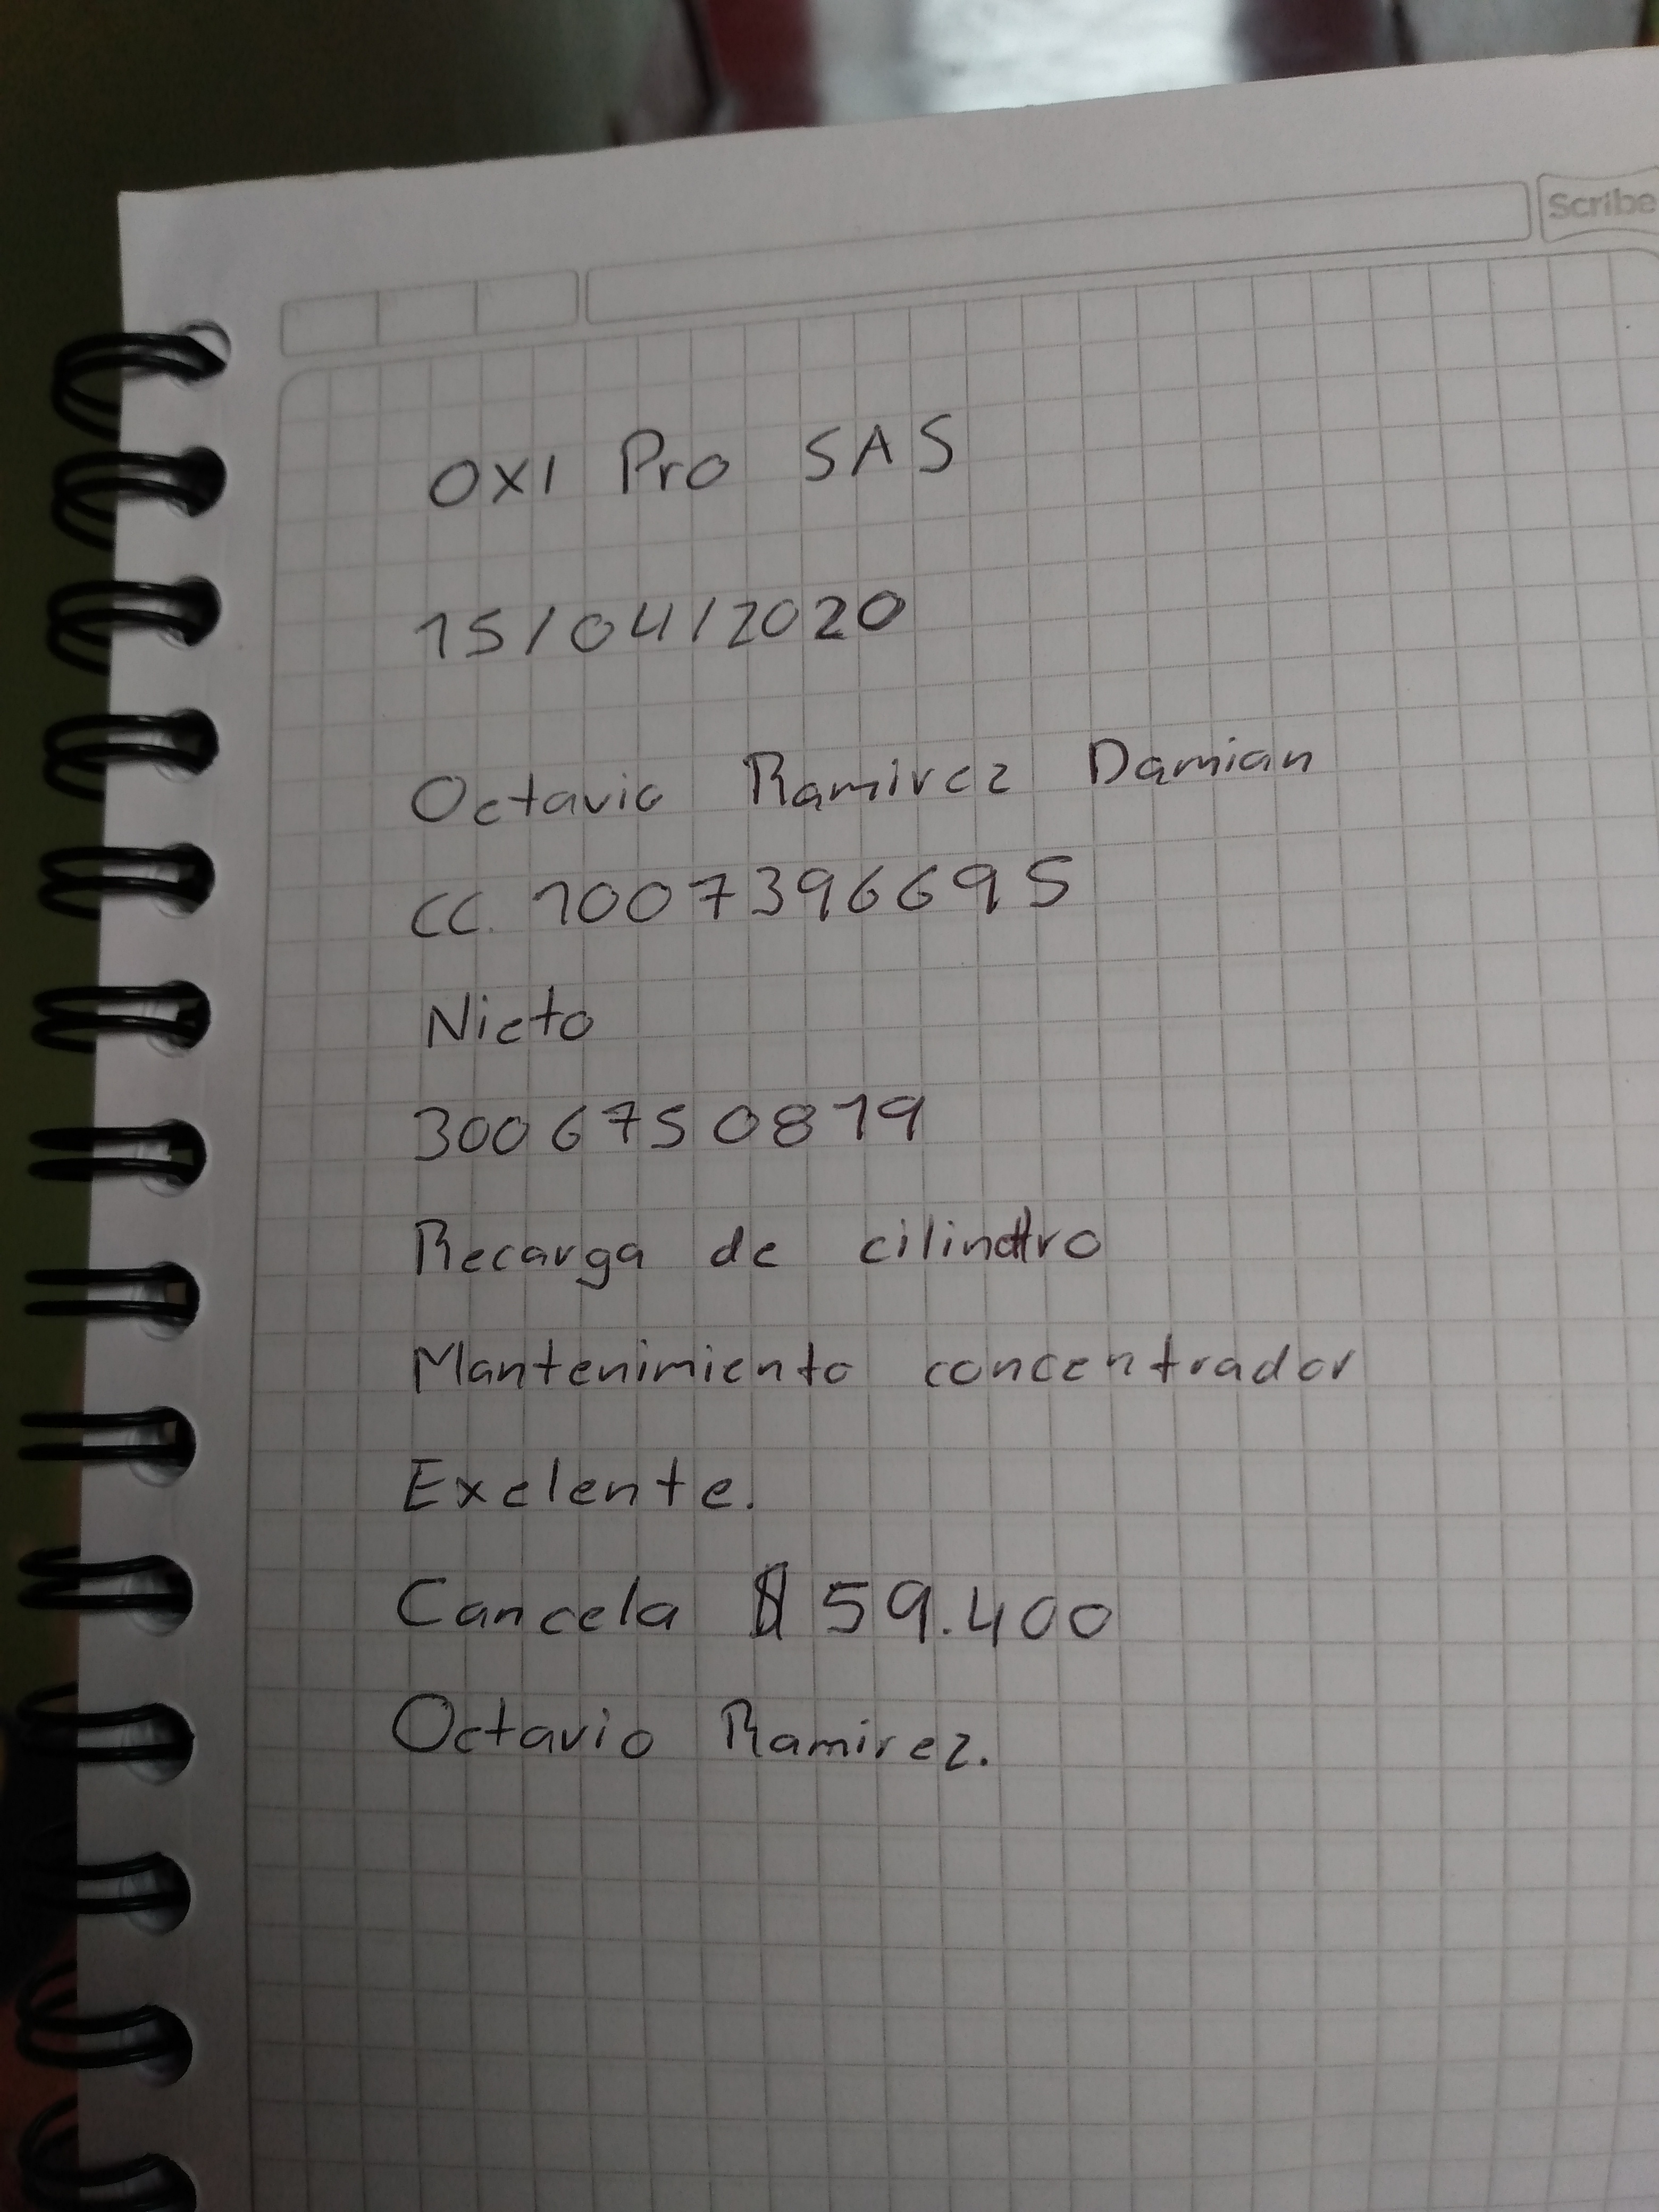 Scribe
OXI Pro SAS
15/04/2020
Octavio Ramirez Damian
CC. 1007396695
Nieto
3006750819
Recarga de cilindro
Mantenimiento concentrador
Exelente.
Cancela $59.400
Octavio Ramirez.